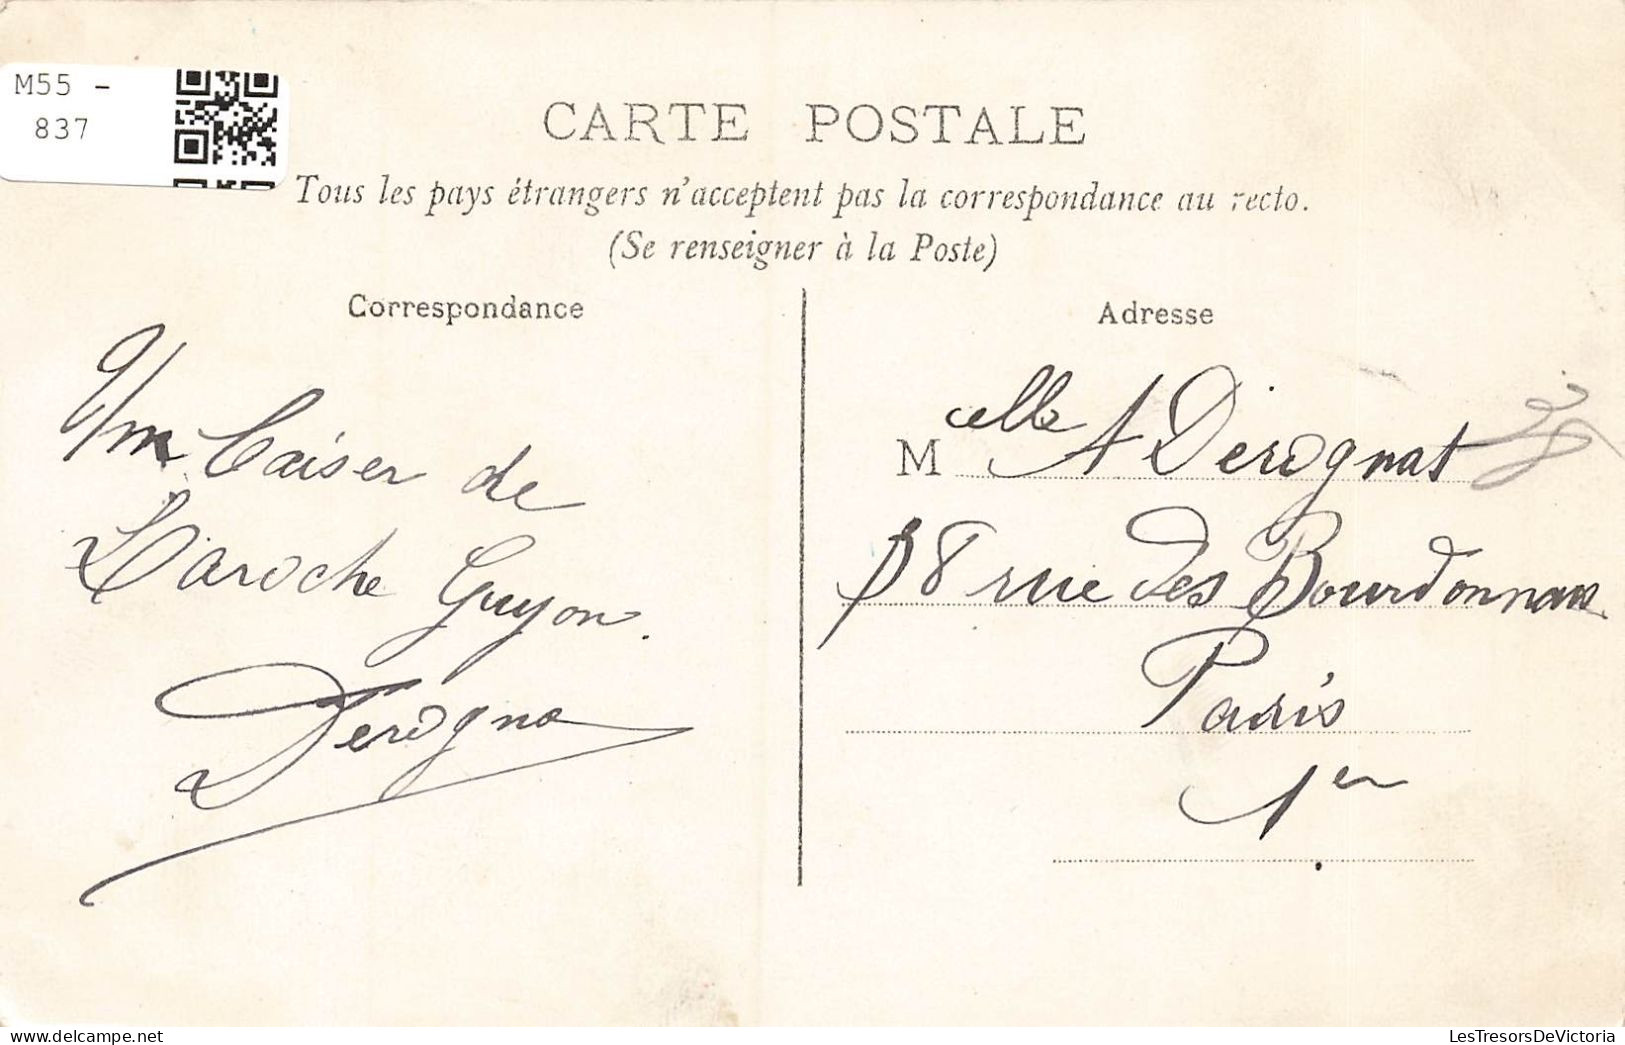 M55 -
837
CARTE POSTALE
Tous les pays étrangers n'acceptent pas la correspondance au recto.
(Se renseigner à la Poste)
Correspondance
Baiser de
Laroche Guyon.
Derogna
Adresse
Mcelle A Derognat
38 rue des Bourdonnais
Paris
1er
LesTresorsDeVictoria